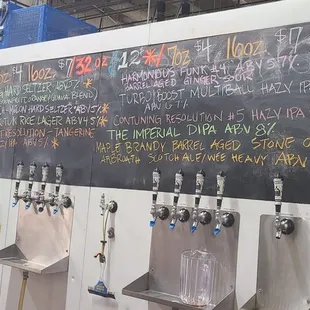 $4 16oz $7 32oz $12 */ 7oz $4 16oz $7
HARD SELTZER ABV5%
HARMONIOUS FUNK #4 ABV 5.7%
BARREL AGED GINGER SOUR
HARD SELTZER ABV 5%
TURBO BOOST MULTIBALL HAZY IPA
ABV 6.7%
RICE LAGER ABV
CONTUNING RESOLUTION #5 HAZY IPA
RESOLUTION - TANGERINE
THE IMPERIAL DIPA ABV 8%
IPA ABV 5%
MAPLE BRANDY BARREL AGED STONE OF
ARBROATH SCOTCH ALE/WEE HEAVY ABV